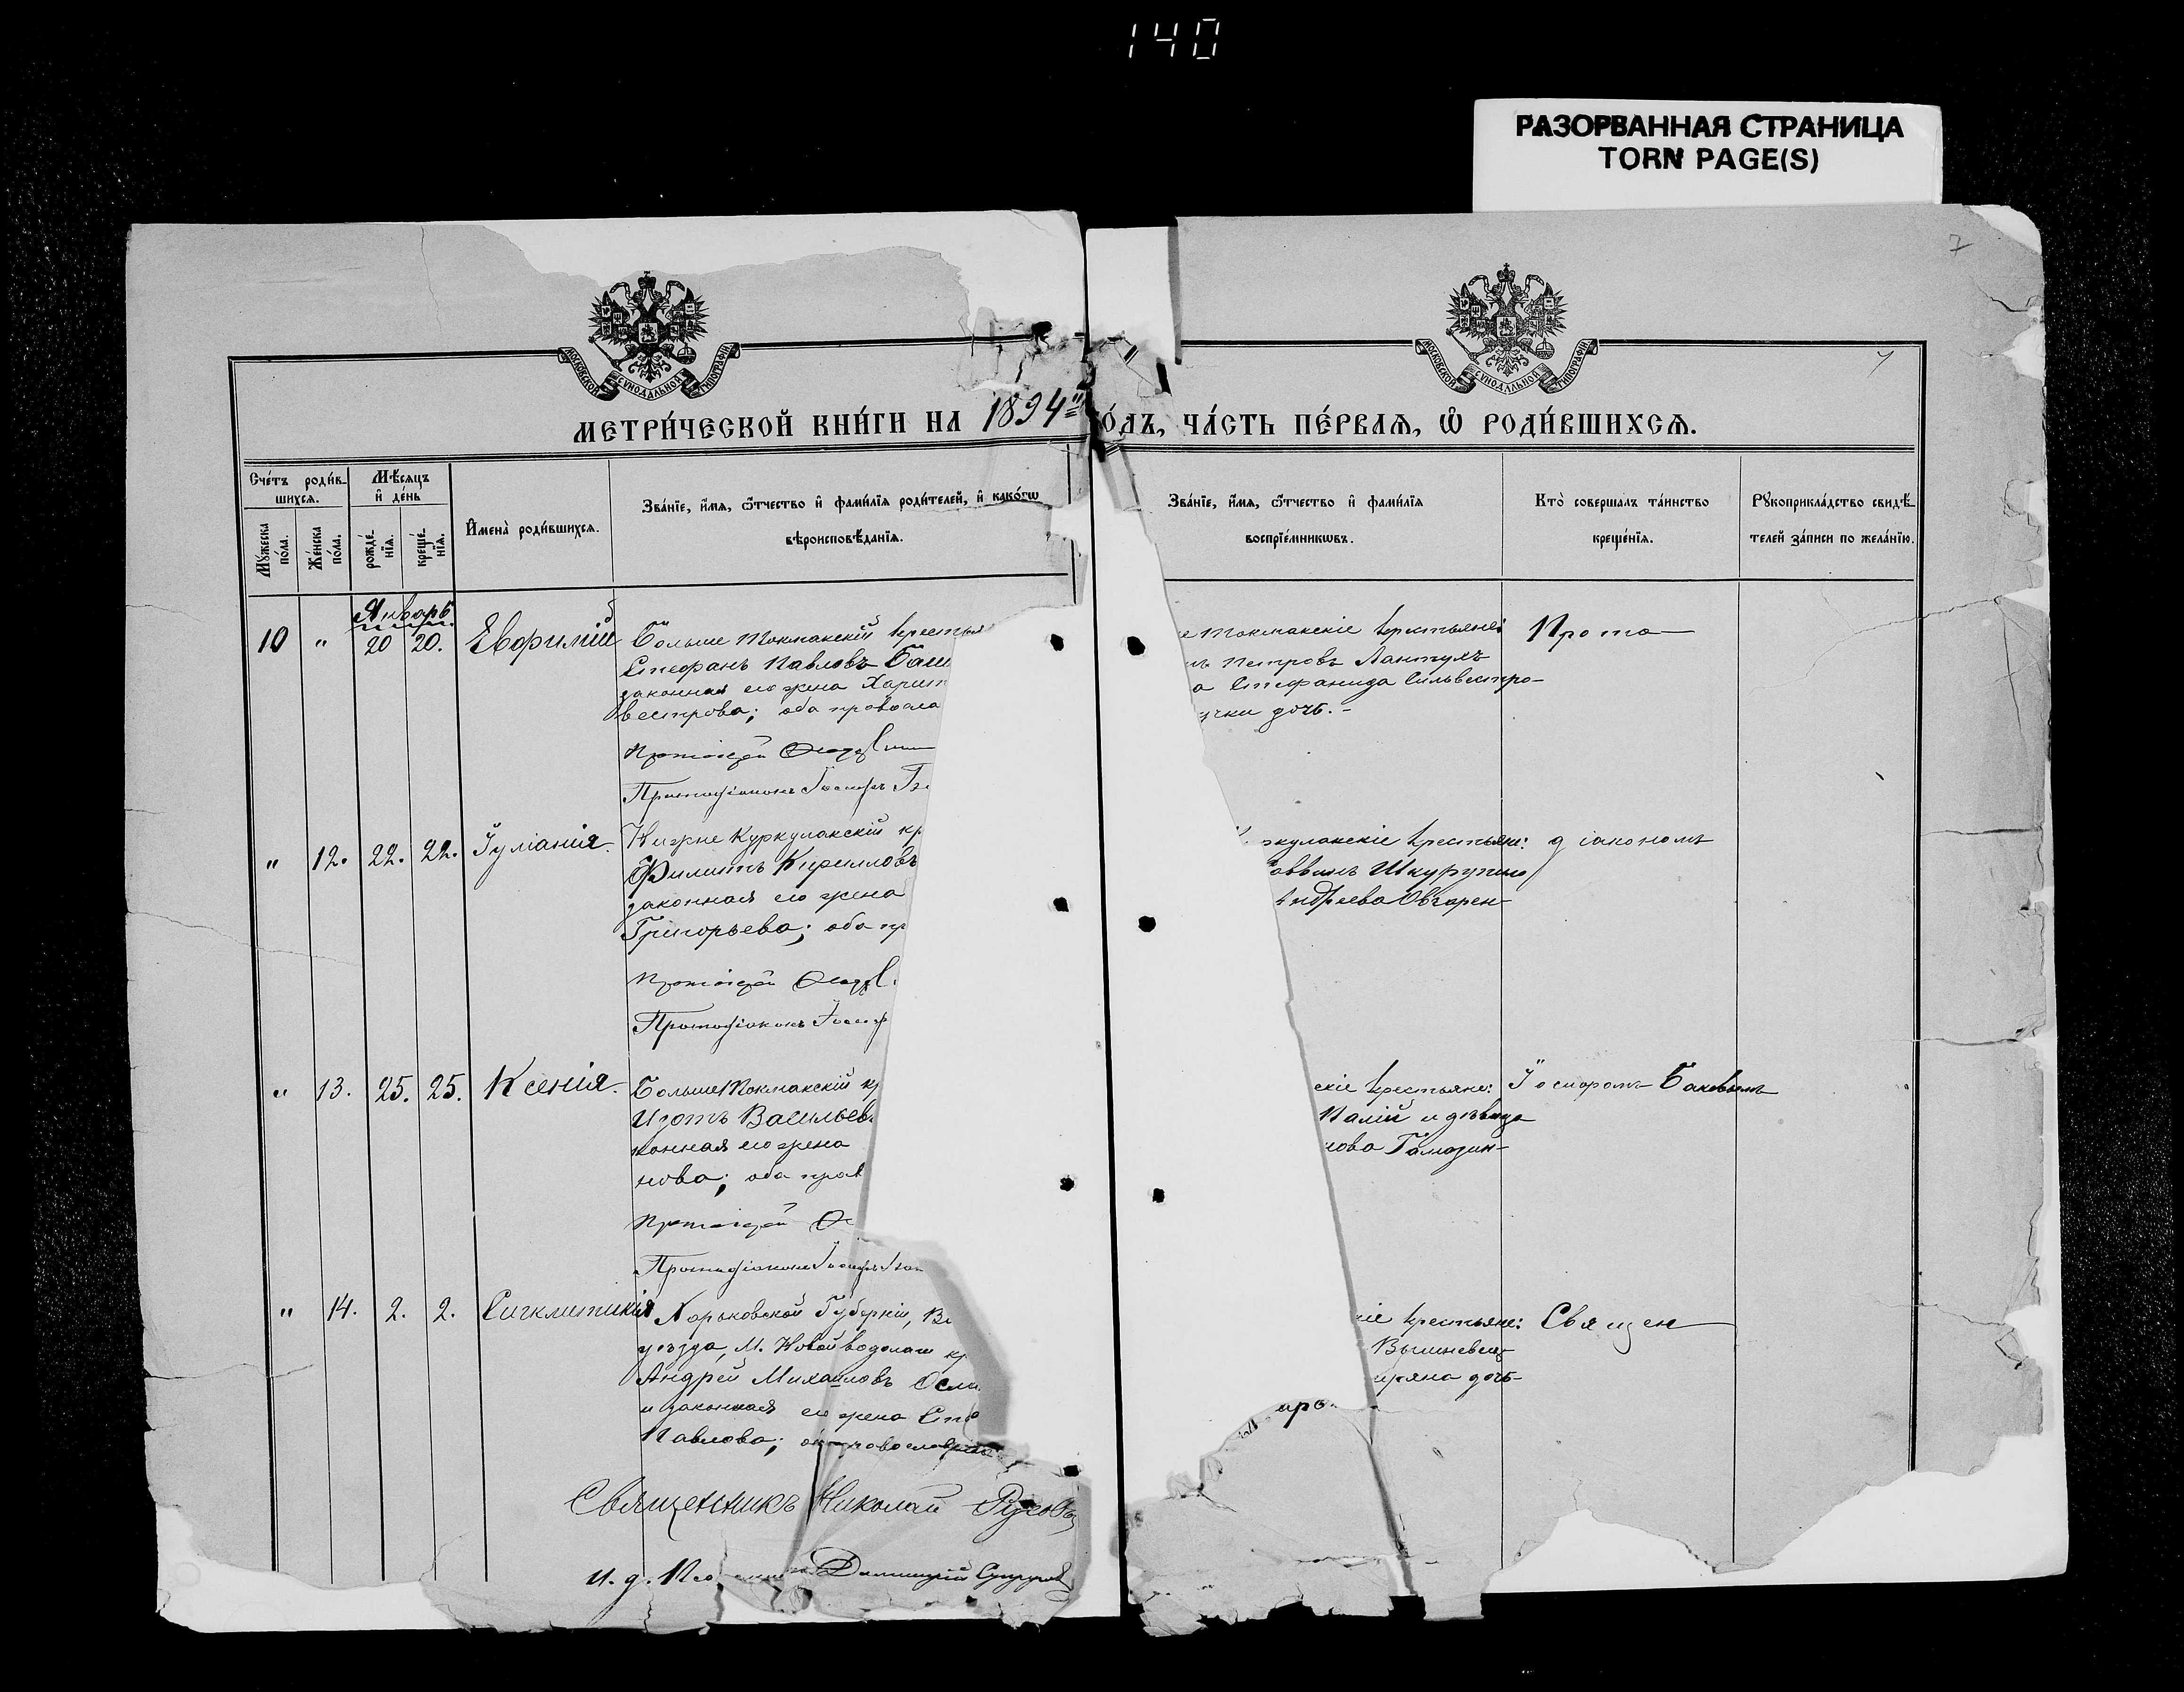 140
РАЗОРВАННАЯ СТРАНИЦА
TORN PAGE(S)
7
МОСКОВСКОЙ СѴНОДАЛЬНОЙ ТИПОГРАФІИ
МОСКОВСКОЙ СѴНОДАЛЬНОЙ ТИПОГРАФІИ
МЕТРИ́ЧЕСКОЙ КНИ́ГИ НА 1894й
О́ДЪ, ЧА́СТЬ ПЕ́РВАЯ, Ѡ҆ РОДИ́ВШИХСЯ.
Сче́тъ роди́в-
шихся.
Мѣ́сяцъ
и҆ де́нь
Мꙋ́жеска
по́ла.
Же́нска
по́ла.
рожде́-
нїя.
креще́-
нїя.
И҆мена̀ роди́вшихся.
Зва́нїе, и҆́мя, ѻ҆́тчество и҆ фами́лїя роди́телей, и҆ како́гѡ
вѣроисповѣ́данїя.
Зва́нїе, и҆́мя, ѻ҆́тчество и҆ фами́лїя
воспрїе́мникѡвъ.
Кто̀ соверша́лъ та́инство
креще́нїя.
Рꙋкоприкла́дство свидѣ́-
телей за́писи по жела́нїю.
Январь
10 " 20 20. Евфимій
Больше Токмакскій крестья
Стефанъ Павловъ Баш
законная его жена Харит
вестрова; оба правосла
Протоіерей
Протодіаконъ Іосифъ
е Токмакскіе крестьяне:
Петровъ Лантухъ
а Стефанида Сильвестро-
чки дочь.-
Прото-
" 12. 22. 22. Іуліанія.
Нижне Куркулакскій кр
Филиппъ Кирилловъ
законная его жена
Григорьева; оба пр
Протоіерей
Протодіаконъ Іосиф
ркулакскіе крестьяне:
Шкурупило
Андреева Овчарен-
діакономъ
" 13. 25. 25. Ксенія.
Больше Токмакскій кр
Изотъ Васильев
конная его жена
нова; оба прав
Протоіерей
Протодіаконъ Іосифъ
скіе крестьяне:
Палій и дѣвица
нова
Іосифомъ Баковымъ
" 14. 2. 2. Сигклитикія
Харьковской Губерніи, В
уѣзда, М. Новой водолаги кр
Андрей Михайловъ
и законная его жена
Павлова; православн
Священникъ Николай
и. д. Димитрій
іе крестьяне:
Вышневец-
дочь-
Священ